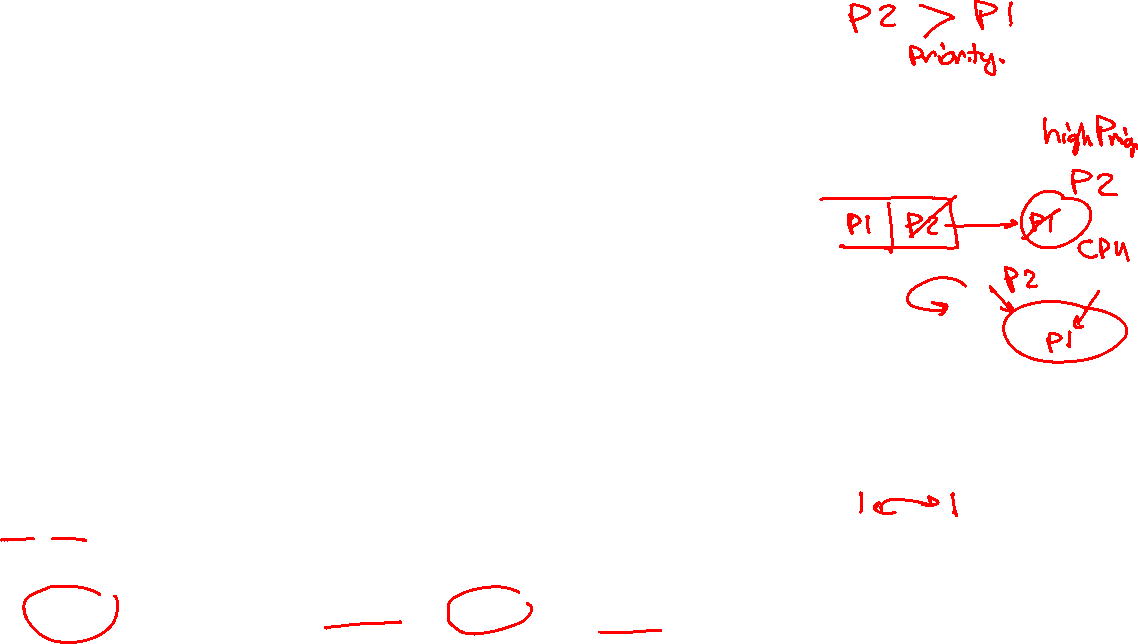 P2 > P1
Priority.
high Prio
P2
P1 P2 P1
CPU
P2
P1
1 1